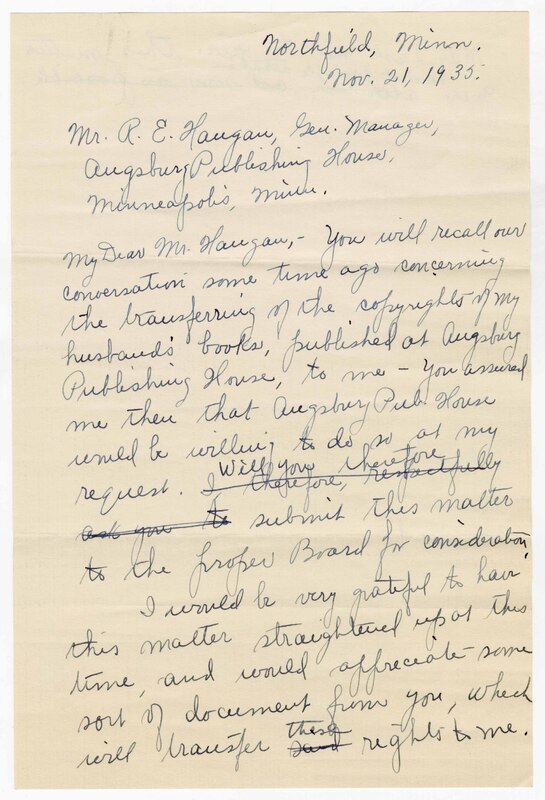 Northfield, Minn.
Nov. 21, 1935.
Mr. R. E. Haugan, Gen. Manager,
Augsburg Publishing House,
Minneapolis, Minn.
My Dear Mr. Haugan,- You will recall our
conversation some time ago concerning
the transferring of the copyrights of my
husband's books, published at Augsburg
Publishing House, to me - You assured
me then that Augsburg Pub. House
would be willing to do so at my
request. I therefore, respectfully
Will you therefore
ask you to submit this matter
to the proper Board for consideration
I would be very grateful to have
this matter straightened up at this
time, and would appreciate some
sort of document from you, which
will transfer said these rights to me.